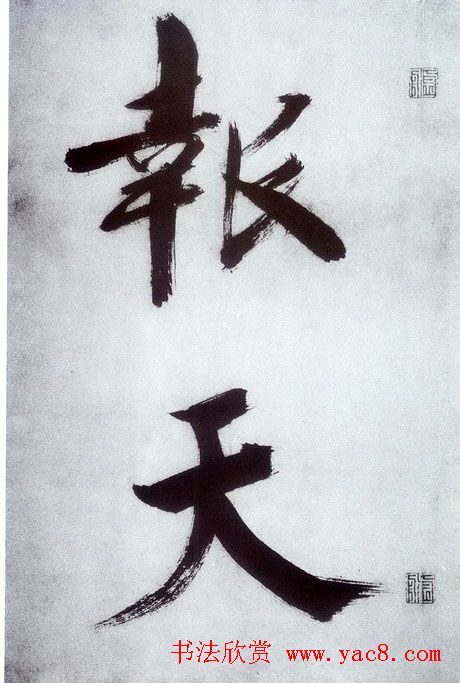 報
天
书法欣赏 www.yac8.com